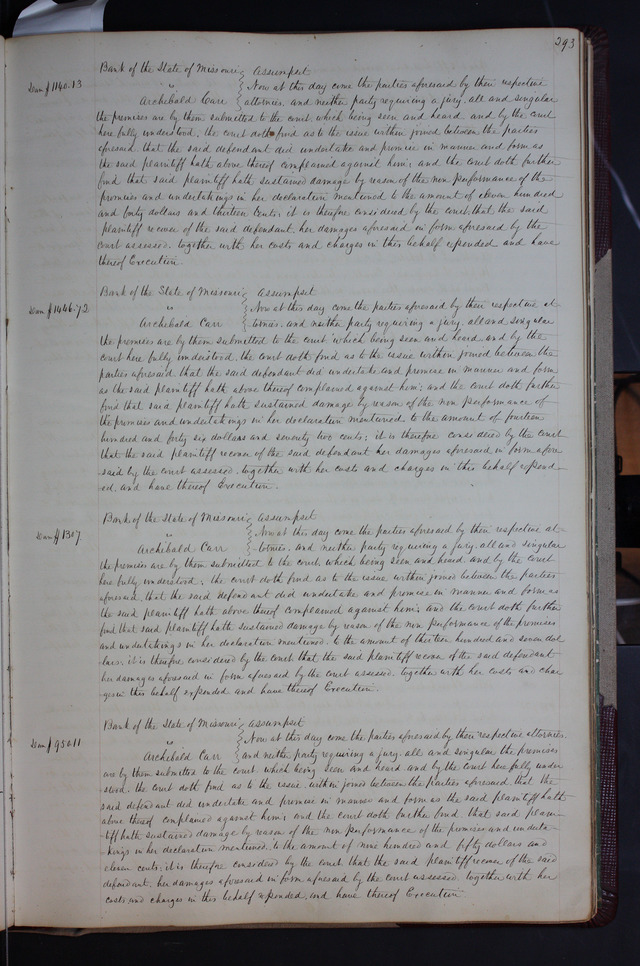 293
Bank of the State of Missouri } Assumpsit
Dam $1140.13
vs } Now at this day come the parties aforesaid by their respective
Archibald Carr } attornies, and neither party requiring a jury, all and singular
the premises are by them submitted to the court, which being seen and heard, and by the court
here fully understood, the court doth find as to the issue within joined between the parties
aforesaid, that the said defendant did undertake and promise in manner and form as
the said plaintiff hath above thereof complained against him; and the court doth further
find that said plaintiff hath sustained damage by reason of the non performance of the
promises and undertakings in her declaration mentioned to the amount of eleven hundred
and forty dollars and thirteen cents; it is therefore considered by the court, that the said
plaintiff recover of the said defendant her damages aforesaid in form aforesaid by the
court assessed, together with her costs and charges in this behalf expended and have
thereof Execution
Bank of the State of Missouri } Assumpsit
Dam $1446.72
vs } Now at this day come the parties aforesaid by their respective at-
Archibald Carr } tornies, and neither party requiring a jury, all and singular
the premises are by them submitted to the court which being seen and heard, and by the
court here fully understood, the court doth find as to the issue within joined between the
parties aforesaid, that the said defendant did undertake and promise in manner and form
as the said plaintiff hath above thereof complained against him; and the court doth further
find that said plaintiff hath sustained damage by reason of the non performance of
the promises and undertakings in her declaration mentioned to the amount of fourteen
hundred and forty six dollars and seventy two cents; it is therefore considered by the court
that the said plaintiff recover of the said defendant her damages aforesaid in form afore-
said by the court assessed, together with her costs and charges in this behalf expend-
ed, and have thereof Execution.
Bank of the State of Missouri } Assumpsit
Dam $1307
vs } Now at this day come the parties aforesaid by their respective at-
Archibald Carr } tornies, and neither party requiring a jury, all and singular
the premises are by them submitted to the court, which being seen and heard, and by the court
here fully understood; the court doth find as to the issue within joined between the parties
aforesaid, that the said defendant did undertake and promise in manner and form as
the said plaintiff hath above thereof complained against him; and the court doth further
find that said plaintiff hath sustained damage by reason of the non performance of the promises
and undertakings in her declaration mentioned, to the amount of thirteen hundred and seven dol-
lars; it is therefore considered by the court that the said plaintiff recover of the said defendant
her damages aforesaid in form aforesaid by the court assessed, together with her costs and char-
ges in this behalf expended and have thereof Execution.
Bank of the State of Missouri } Assumpsit
Dam $950.11
vs } Now at this day come the parties aforesaid by their respective attornies,
Archibald Carr } and neither party requiring a jury, all and singular the premises
are by them submitted to the court, which being seen and heard, and by the court here fully under-
stood, the court doth find as to the issue within joined between the parties aforesaid that the
said defendant did undertake and promise in manner and form as the said plaintiff hath
above thereof complained against him; and the court doth further find that said plain-
tiff hath sustained damage by reason of the non performance of the promises and underta-
kings in her declaration mentioned, to the amount of nine hundred and fifty dollars and
eleven cents; it is therefore considered by the court that the said plaintiff recover of the said
defendant, her damages aforesaid in form aforesaid by the court assessed, together with her
costs and charges in this behalf expended, and have thereof Execution